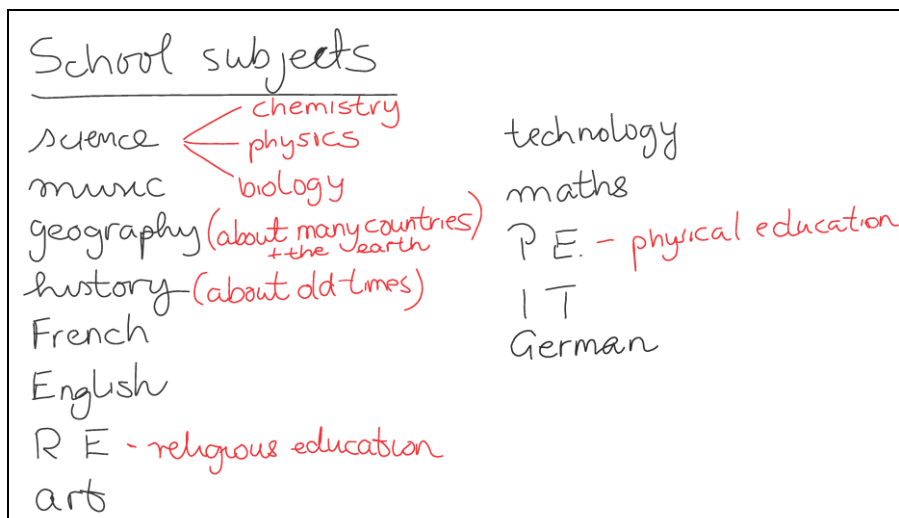 School subjects
science
chemistry
physics
biology
music
geography (about many countries)
+ the earth
history (about old times)
French
English
R E - religious education
art
technology
maths
P E. - physical education
I T
German